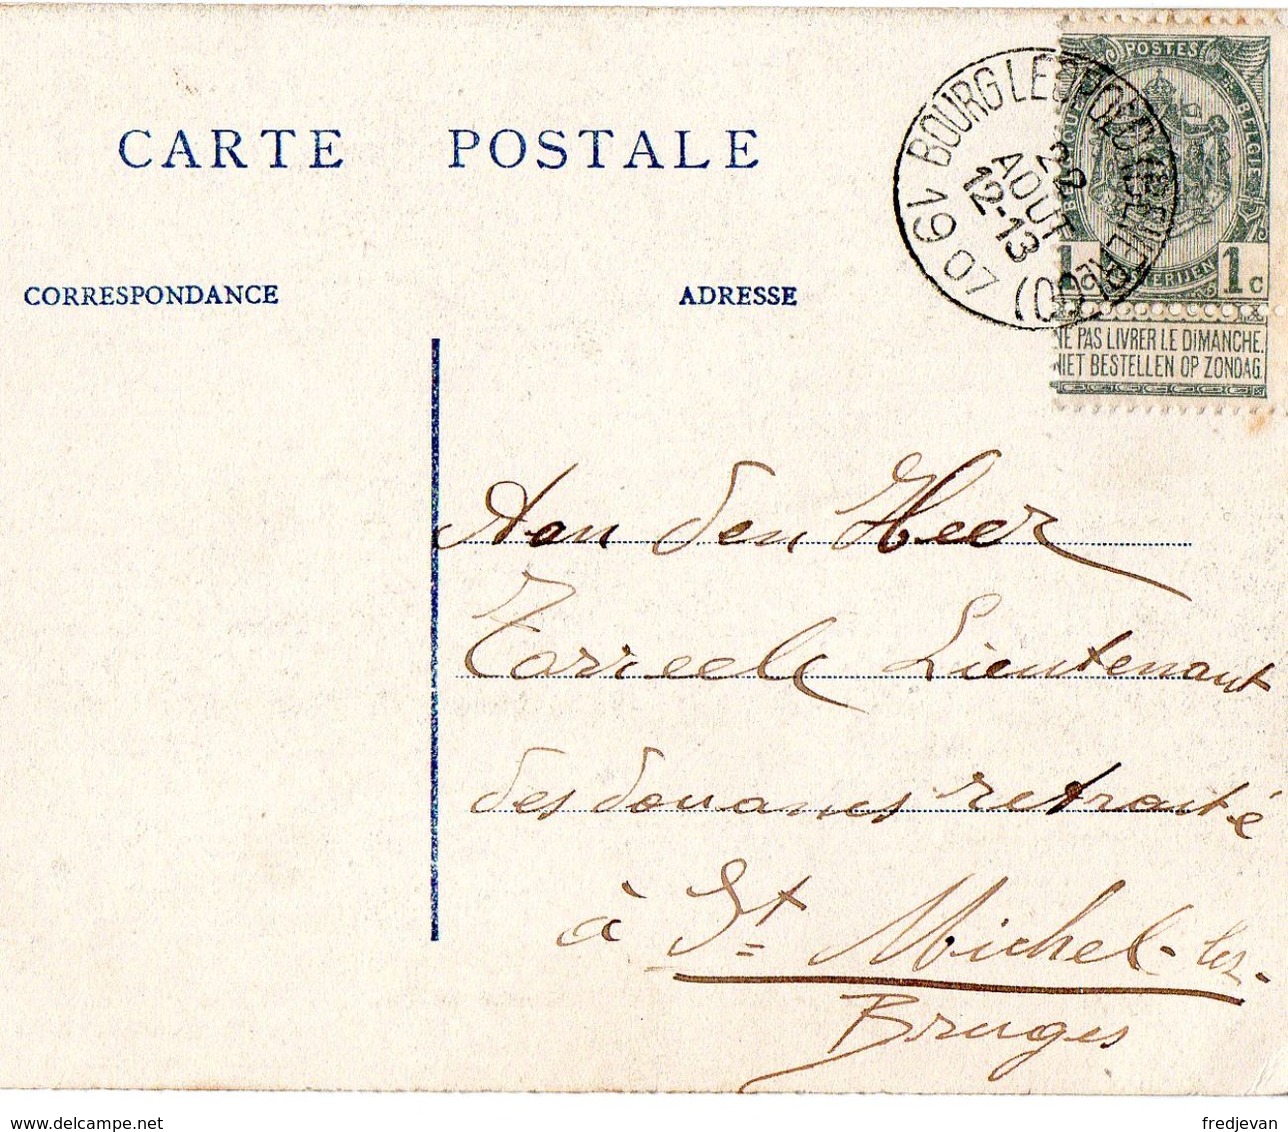 CARTE POSTALE
CORRESPONDANCE
ADRESSE
BOURG LEOPOLD
22
AOUT
12-13
1907
POSTES
BELGIQUE BELGIE
1c 1c
NE PAS LIVRER LE DIMANCHE.
NIET BESTELLEN OP ZONDAG.
Aan den Heer
Torreele Lieutenant
des douanes retraité
à St Michel-lez-
Bruges
www.delcampe.net
fredjevan